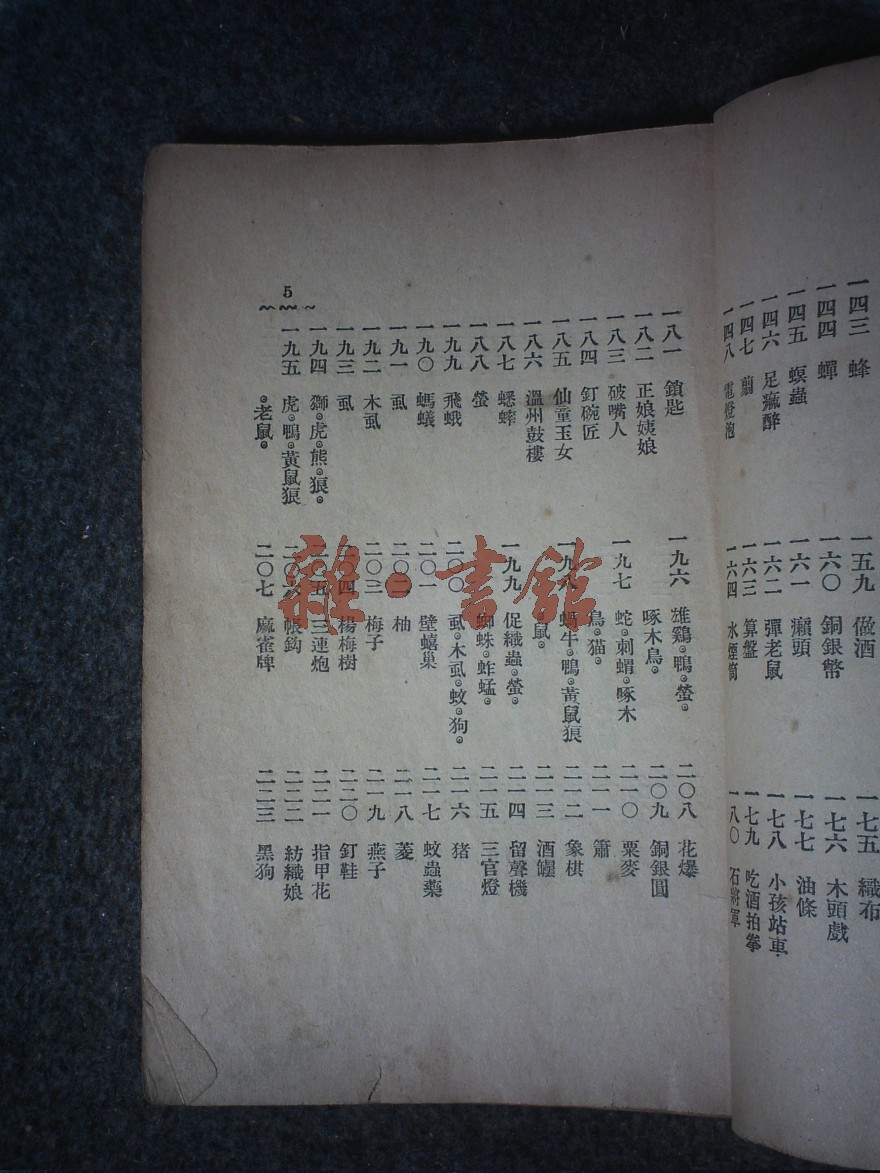 一四三 蜂
一四四 蟬
一四五 螟蟲
一四六 足痲醉
一四七 繭
一四八 電燈泡
一五九 做酒
一六〇 銅銀幣
一六一 癩頭
一六二 彈老鼠
一六三 算盤
一六四 水煙筒
一七五 織布
一七六 木頭戲
一七七 油條
一七八 小孩站車
一七九 吃酒拍拳
一八〇 石將軍
一八一 鎖匙
一八二 正娘姨娘
一八三 破嘴人
一八四 釘碗匠
一八五 仙童玉女
一八六 溫州鼓樓
一八七 蟋蟀
一八八 螢
一九九 飛蛾
一九〇 螞蟻
一九一 虱
一九二 木虱
一九三 虱
一九四 獅。虎。熊。狼。
一九五 虎。鴨。黃鼠狼
。老鼠。
一九六 雄鷄。鴨。螢。
啄木鳥。
一九七 蛇。刺蝟。啄木
鳥。貓。
一九八 蝸牛。鴨。黃鼠狼
。鼠。
一九九 促織蟲。螢。
二〇〇 虱。木虱。蚊。狗。
蜘蛛。蚱蜢。
二〇一 壁蟢巢
二〇二 柚
二〇三 梅子
二〇四 楊梅樹
二〇五 三連炮
二〇六 帳鈎
二〇七 麻雀牌
二〇八 花爆
二〇九 銅銀圓
二一〇 粟麥
二一一 簫
二一二 象棋
二一三 酒罎
二一四 留聲機
二一五 三官燈
二一六 猪
二一七 蚊蟲藥
二一八 菱
二一九 燕子
二二〇 釘鞋
二二一 指甲花
二二二 紡織娘
二二三 黑狗
5
雜·書館